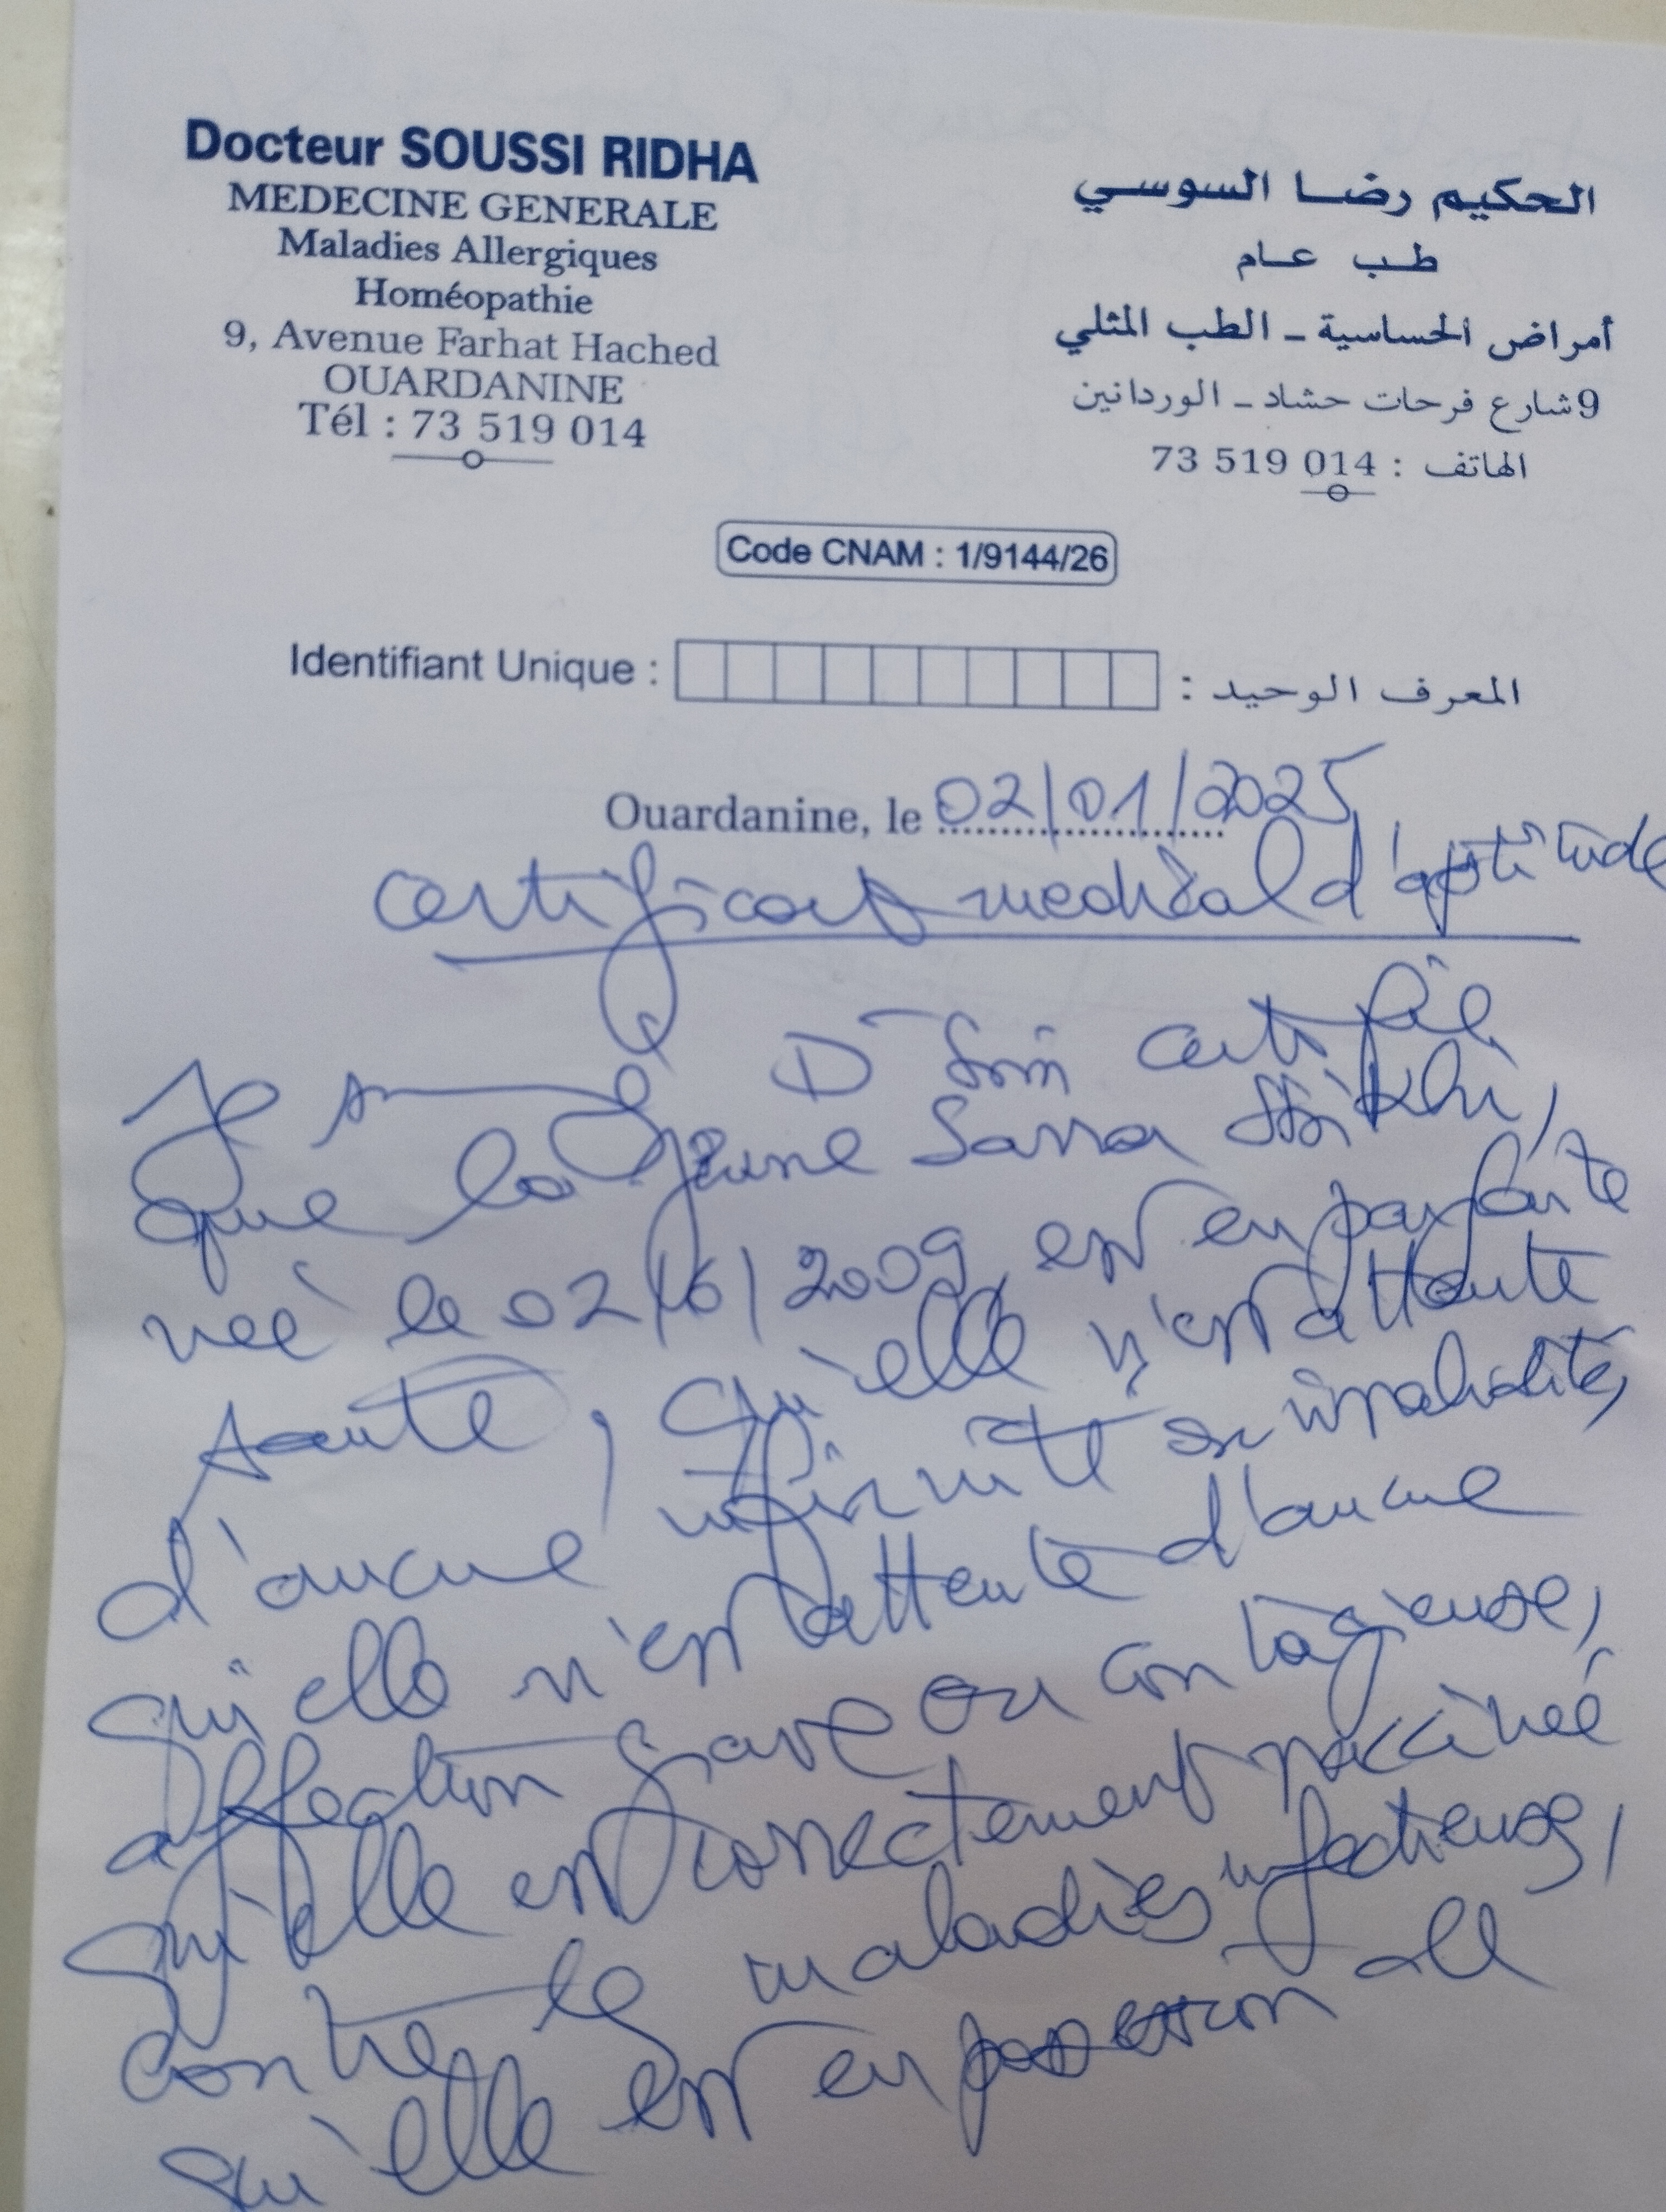 Docteur SOUSSI RIDHA
MEDECINE GENERALE
Maladies Allergiques
Homéopathie
9, Avenue Farhat Hached
OUARDANINE
Tél : 73 519 014
الحكيم رضا السوسي
طب عام
أمراض الحساسية - الطب المثلي
9 شارع فرحات حشاد - الوردانين
الهاتف : 73 519 014
Code CNAM : 1/9144/26
Identifiant Unique : المعرف الوحيد :
Ouardanine, le 02/01/2025
certificat medical d'aptitude
Je D certifie
que la jeune Sarra
née le 02/6/2009, est en parfaite
santé, qu'elle n'est attente
d'aucune infirmité ou invalidité,
qu'elle n'est attente d'aucune
affection grave ou contagieuse,
qu'elle est correctement vaccinée
contre les maladies infectieuses,
qu'elle est en possession